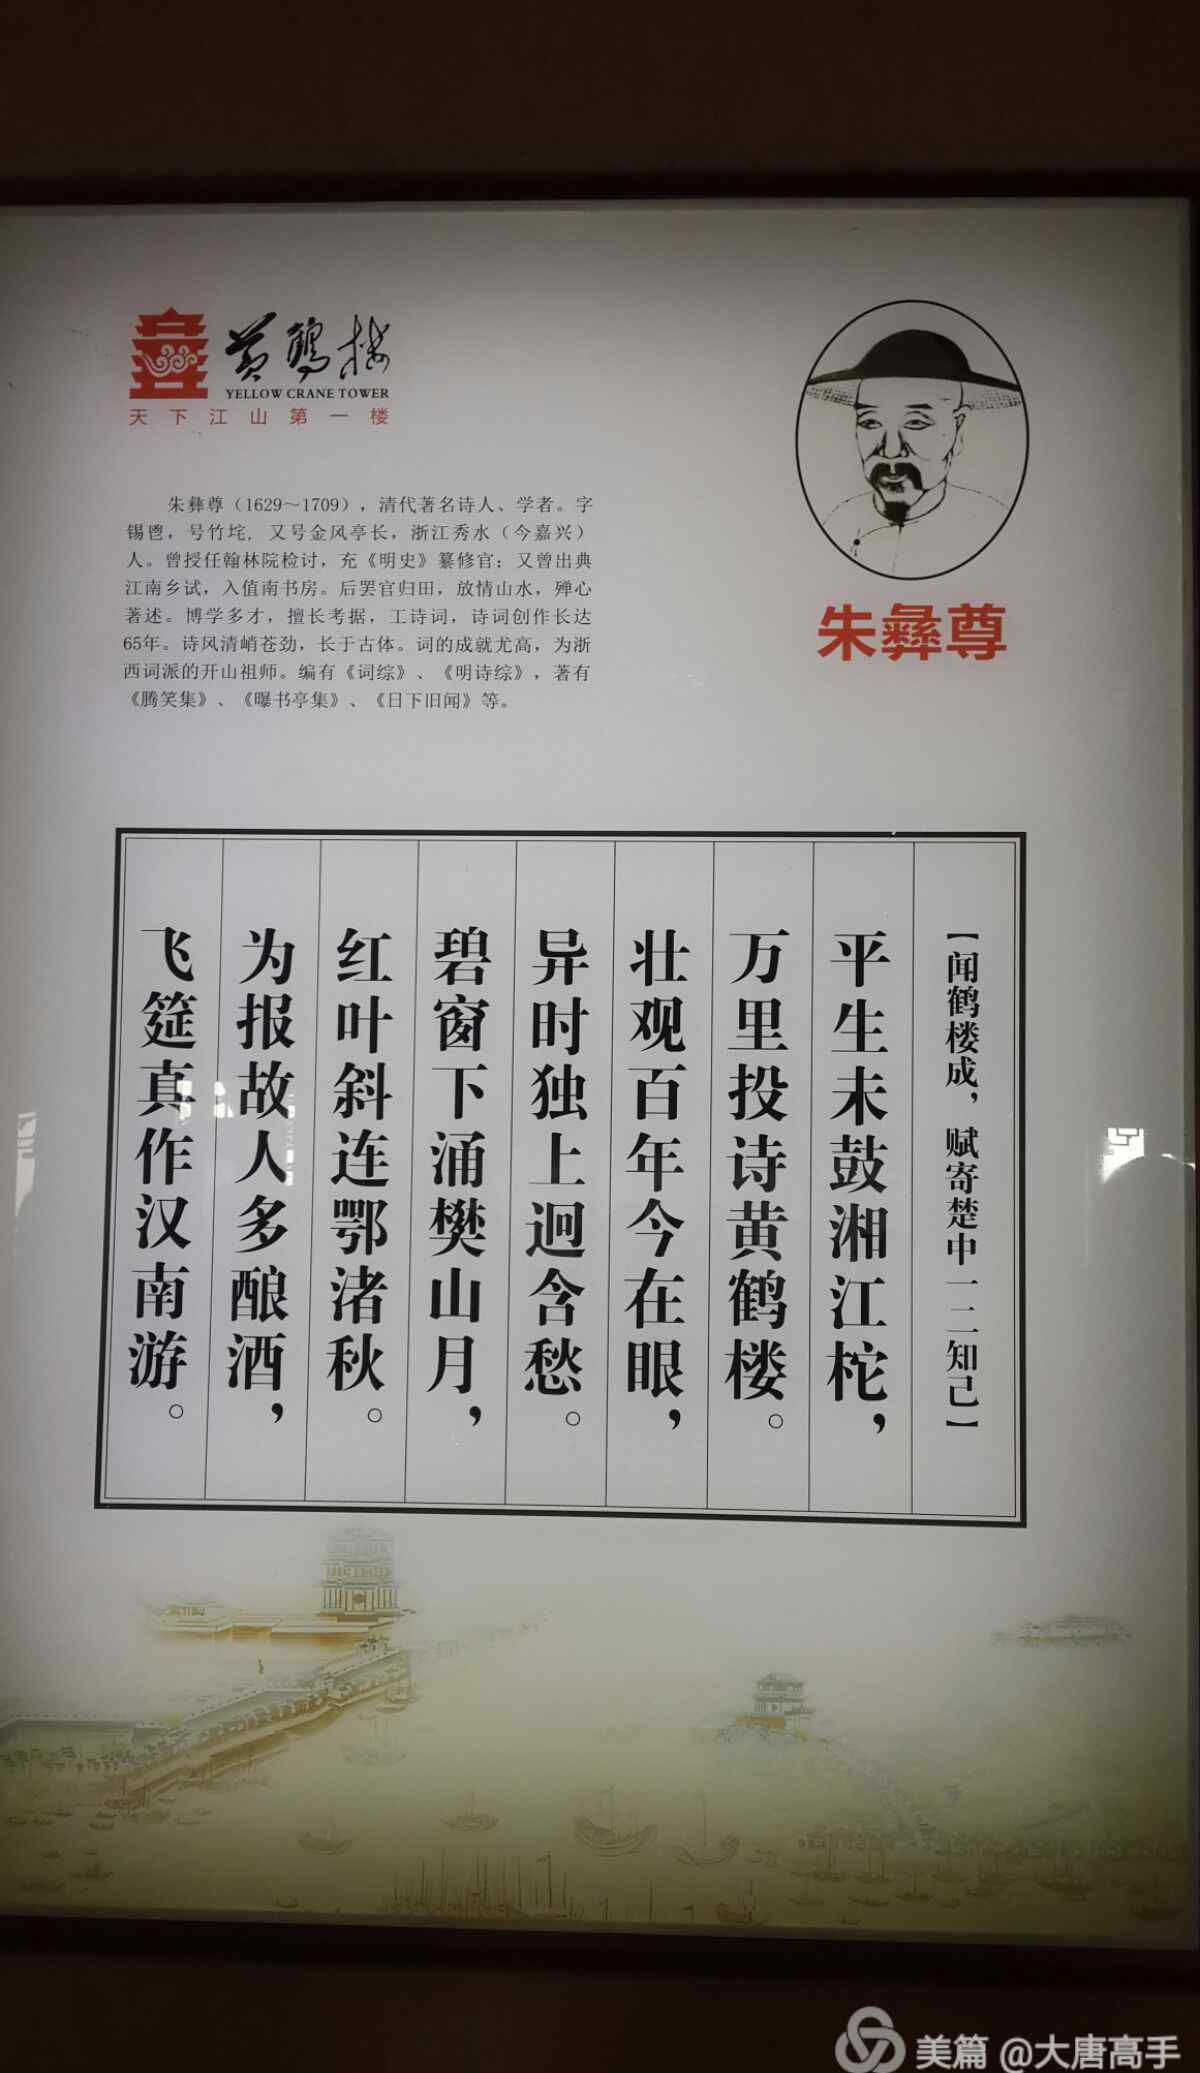 黄鹤楼
YELLOW CRANE TOWER
天下江山第一楼
朱彝尊（1629～1709），清代著名诗人、学者。字
锡鬯，号竹垞，又号金风亭长，浙江秀水（今嘉兴）
人。曾授任翰林院检讨，充《明史》纂修官；又曾出典
江南乡试，入值南书房。后罢官归田，放情山水，殚心
著述。博学多才，擅长考据，工诗词，诗词创作长达
65年。诗风清峭苍劲，长于古体。词的成就尤高，为浙
西词派的开山祖师。编有《词综》、《明诗综》，著有
《腾笑集》、《曝书亭集》、《日下旧闻》等。
朱彝尊
【闻鹤楼成，赋寄楚中一二知己】
平生未鼓湘江柁，
万里投诗黄鹤楼。
壮观百年今在眼，
异时独上迥含愁。
碧窗下涌樊山月，
红叶斜连鄂渚秋。
为报故人多酿酒，
飞筵真作汉南游。
美篇 @大唐高手